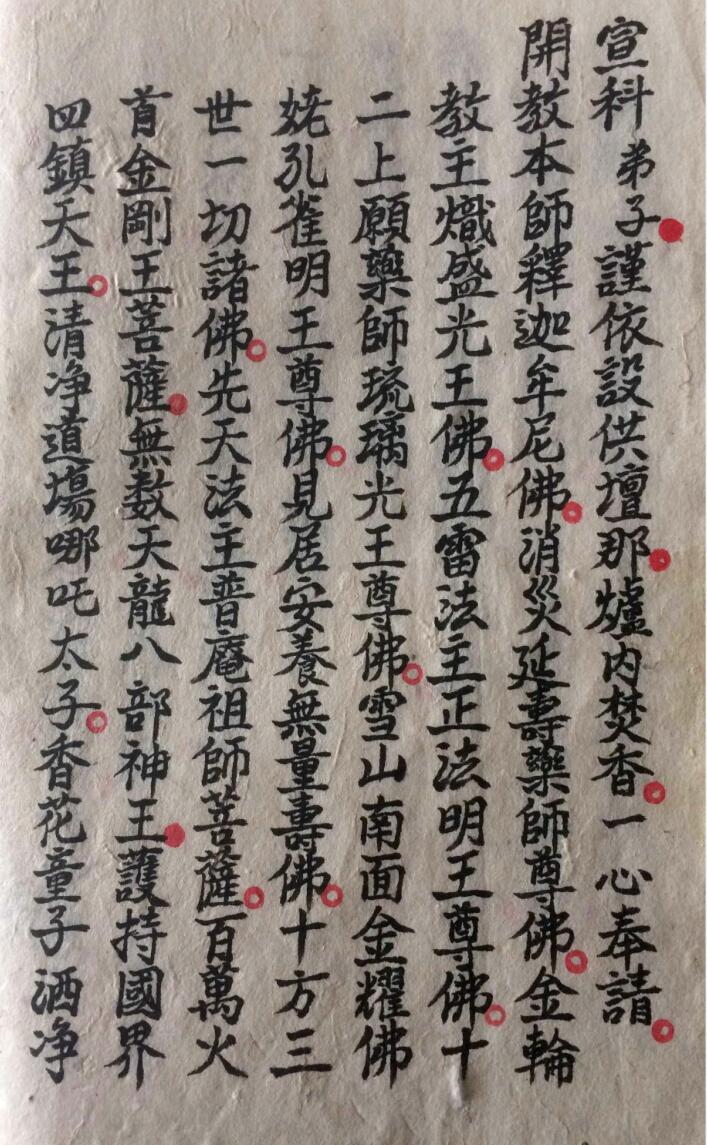 宣科弟子謹依設供壇那爐内焚香一心奉請
開教本師釋迦牟尼佛消災延壽藥師尊佛金輪
教主熾盛光王佛五雷法主正法明王尊佛十
二上願藥師琉璃光王尊佛雪山南面金耀佛
姥孔雀明王尊佛見居安養無量壽佛十方三
世一切諸佛先天法主普庵祖師菩薩百萬火
首金剛王菩薩無数天龍八部神王護持國界
四鎮天王清净道場哪吒太子香花童子洒净